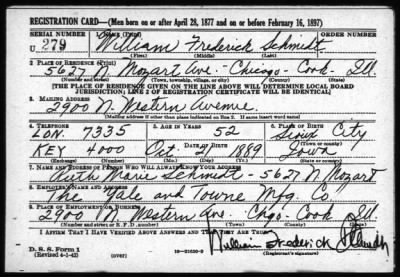 REGISTRATION CARD—(Men born on or after April 28, 1877 and on or before February 16, 1897)
SERIAL NUMBER 1. NAME (Print) ORDER NUMBER
U 279 William Frederick Schmidt
(First) (Middle) (Last)
2. PLACE OF RESIDENCE (Print)
5627 N Mozart Ave - Chicago - Cook - Ill.
(Number and street) (Town, township, village, or city) (County) (State)
[THE PLACE OF RESIDENCE GIVEN ON THE LINE ABOVE WILL DETERMINE LOCAL BOARD
JURISDICTION; LINE 2 OF REGISTRATION CERTIFICATE WILL BE IDENTICAL]
3. MAILING ADDRESS
2900 N. Western Avenue
(Mailing address if other than place indicated on line 2. If same insert word same)
4. TELEPHONE 5. AGE IN YEARS 6. PLACE OF BIRTH
LON. 7335 52 Sioux City
DATE OF BIRTH (Town or county)
KEY 4000 Oct. 1889 Iowa
(Exchange) (Number) (Mo.) (Day) (Yr.) (State or country)
7. NAME AND ADDRESS OF PERSON WHO WILL ALWAYS KNOW YOUR ADDRESS
Ruth Marie Schmidt - 5627 N Mozart
8. EMPLOYER'S NAME AND ADDRESS
The Yale and Towne Mfg. Co
9. PLACE OF EMPLOYMENT OR BUSINESS
2900 N. Western Ave - Chgo - Cook - Ill.
(Number and street or R. F. D. number) (Town) (County) (State)
I AFFIRM THAT I HAVE VERIFIED ABOVE ANSWERS AND THAT THEY ARE TRUE.
D. S. S. Form 1
(Revised 4-1-42) (over) William Frederick Schmidt